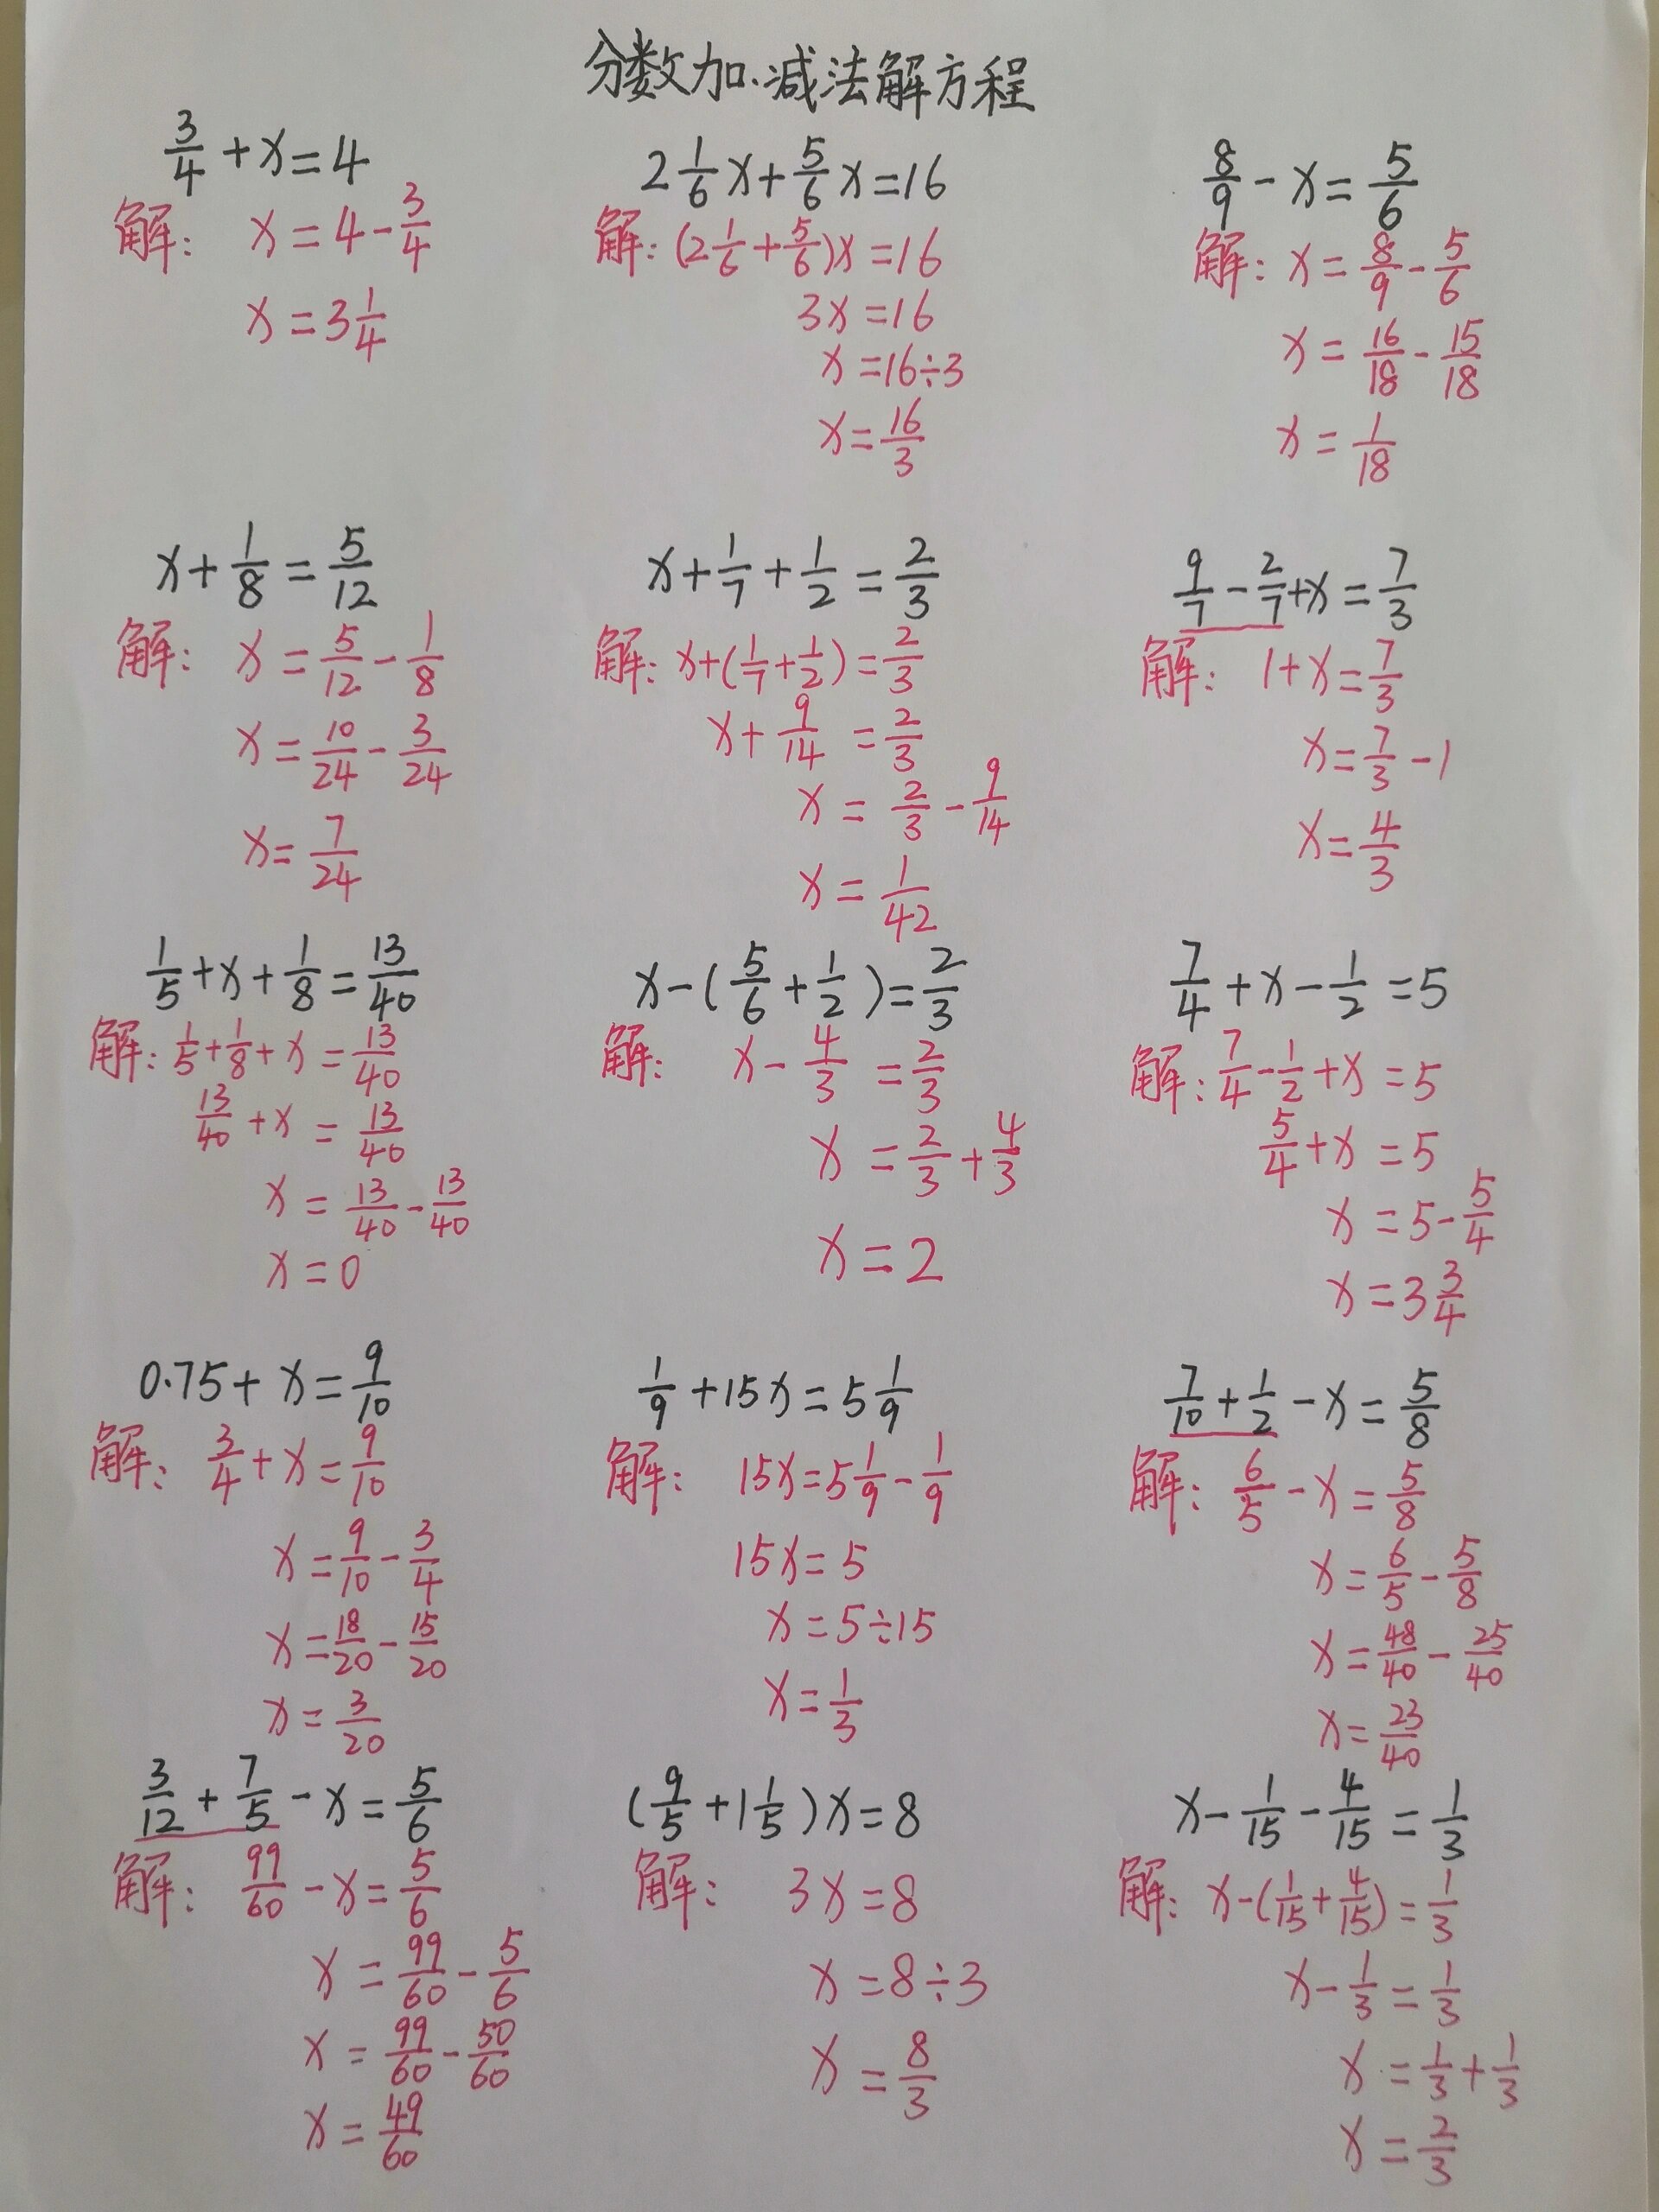 分数加.减法解方程
3/4 + x = 4
解: x = 4 - 3/4
x = 3 1/4
2 1/6 x + 5/6 x = 16
解: (2 1/6 + 5/6)x = 16
3x = 16
x = 16÷3
x = 16/3
8/9 - x = 5/6
解: x = 8/9 - 5/6
x = 16/18 - 15/18
x = 1/18
x + 1/8 = 5/12
解: x = 5/12 - 1/8
x = 10/24 - 3/24
x = 7/24
x + 1/7 + 1/2 = 2/3
解: x + (1/7 + 1/2) = 2/3
x + 9/14 = 2/3
x = 2/3 - 9/14
x = 1/42
9/7 - 2/7 + x = 7/3
解: 1 + x = 7/3
x = 7/3 - 1
x = 4/3
1/5 + x + 1/8 = 13/40
解: 1/5 + 1/8 + x = 13/40
13/40 + x = 13/40
x = 13/40 - 13/40
x = 0
x - (5/6 + 1/2) = 2/3
解: x - 4/3 = 2/3
x = 2/3 + 4/3
x = 2
7/4 + x - 1/2 = 5
解: 7/4 - 1/2 + x = 5
5/4 + x = 5
x = 5 - 5/4
x = 3 3/4
0.75 + x = 9/10
解: 3/4 + x = 9/10
x = 9/10 - 3/4
x = 18/20 - 15/20
x = 3/20
1/9 + 15x = 5 1/9
解: 15x = 5 1/9 - 1/9
15x = 5
x = 5÷15
x = 1/3
7/10 + 1/2 - x = 5/8
解: 6/5 - x = 5/8
x = 6/5 - 5/8
x = 48/40 - 25/40
x = 23/40
3/12 + 7/5 - x = 5/6
解: 99/60 - x = 5/6
x = 99/60 - 5/6
x = 99/60 - 50/60
x = 49/60
(9/5 + 1 1/5)x = 8
解: 3x = 8
x = 8÷3
x = 8/3
x - 1/15 - 4/15 = 1/3
解: x - (1/15 + 4/15) = 1/3
x - 1/3 = 1/3
x = 1/3 + 1/3
x = 2/3